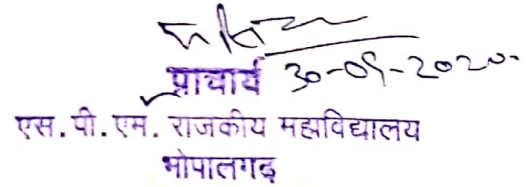 प्राचार्य 30-09-2020
एस. पी. एम. राजकीय महाविद्यालय
भोपालगढ़